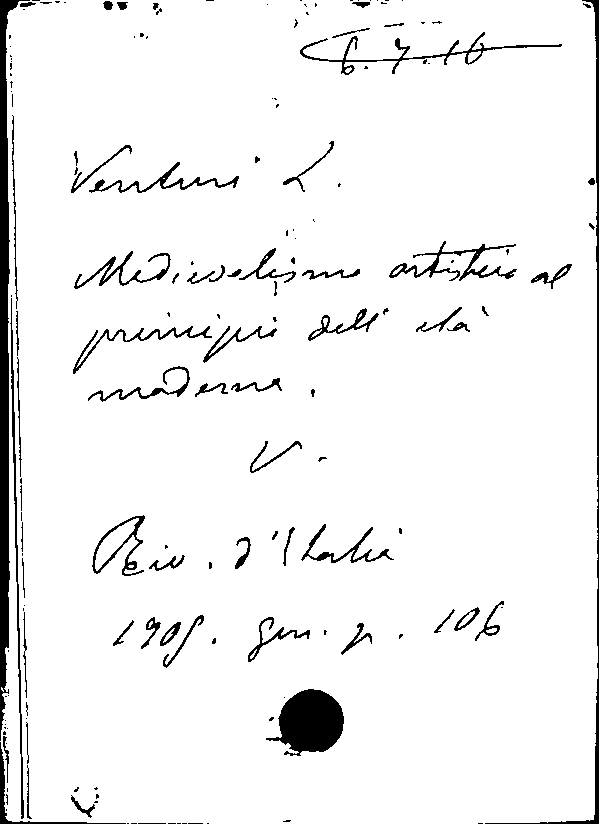 6.7.16
Venturi L.
Medievalismo artistico al
principio dell' età
moderna.
V.
Riv. d'Italia
1905. gen. p. 106